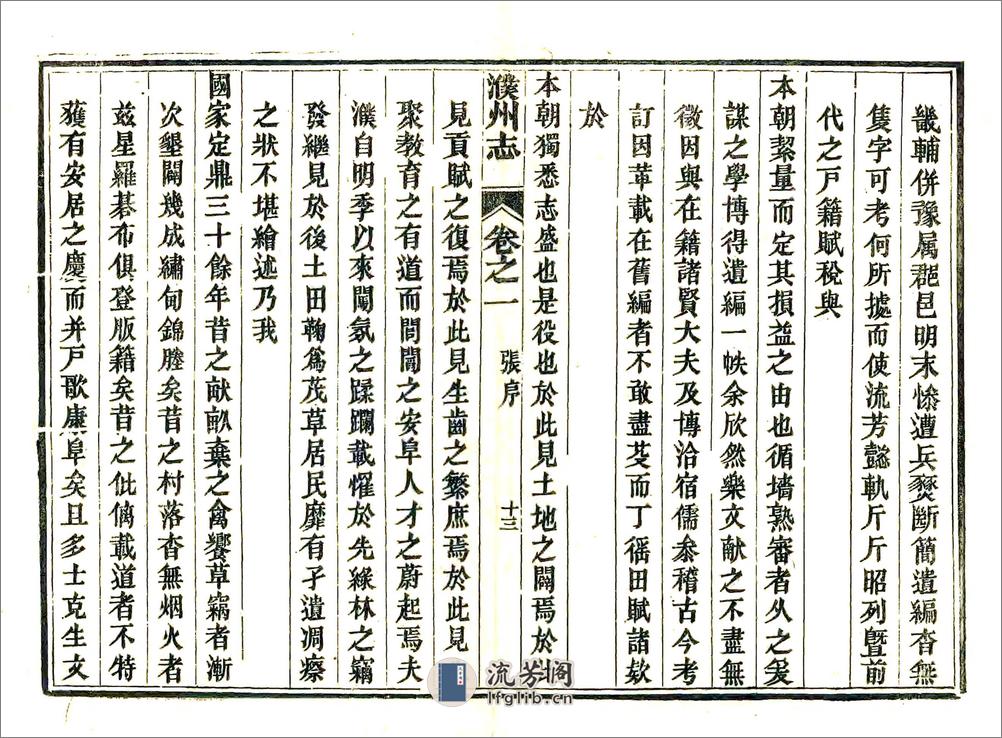 畿輔併豫属郡邑明末慘遭兵燹斷簡遺編杳無
隻字可考何所據而使流芳懿軌斤斤昭列暨前
代之戸籍賦稅與
本朝絜量而定其損益之由也循墻熟審者久之爰
謀之學博得遺編一帙余欣然樂文献之不盡無
徵因與在籍諸賢大夫及博洽宿儒叅稽古今考
訂因革載在舊編者不敢盡芟而丁徭田賦諸欵
於
本朝獨悉志盛也是役也於此見土地之闢焉於
濮州志 卷之一 張序 十三
見貢賦之復焉於此見生齒之繁庶焉於此見
聚教育之有道而閭閻之安阜人才之蔚起焉夫
濮自明季以來闖氛之蹂躪載懼於先綠林之竊
發繼見於後土田鞠爲茂草居民靡有孑遺凋瘵
之狀不堪繪述乃我
國家定鼎三十餘年昔之畎畝棄之禽饗草竊者漸
次墾闢幾成繡甸錦塍矣昔之村落杳無烟火者
兹星羅碁布俱登版籍矣昔之仳㒧載道者不特
獲有安居之慶而并戸歌康阜矣且多士克生文
流芳阁
lfglib.cn